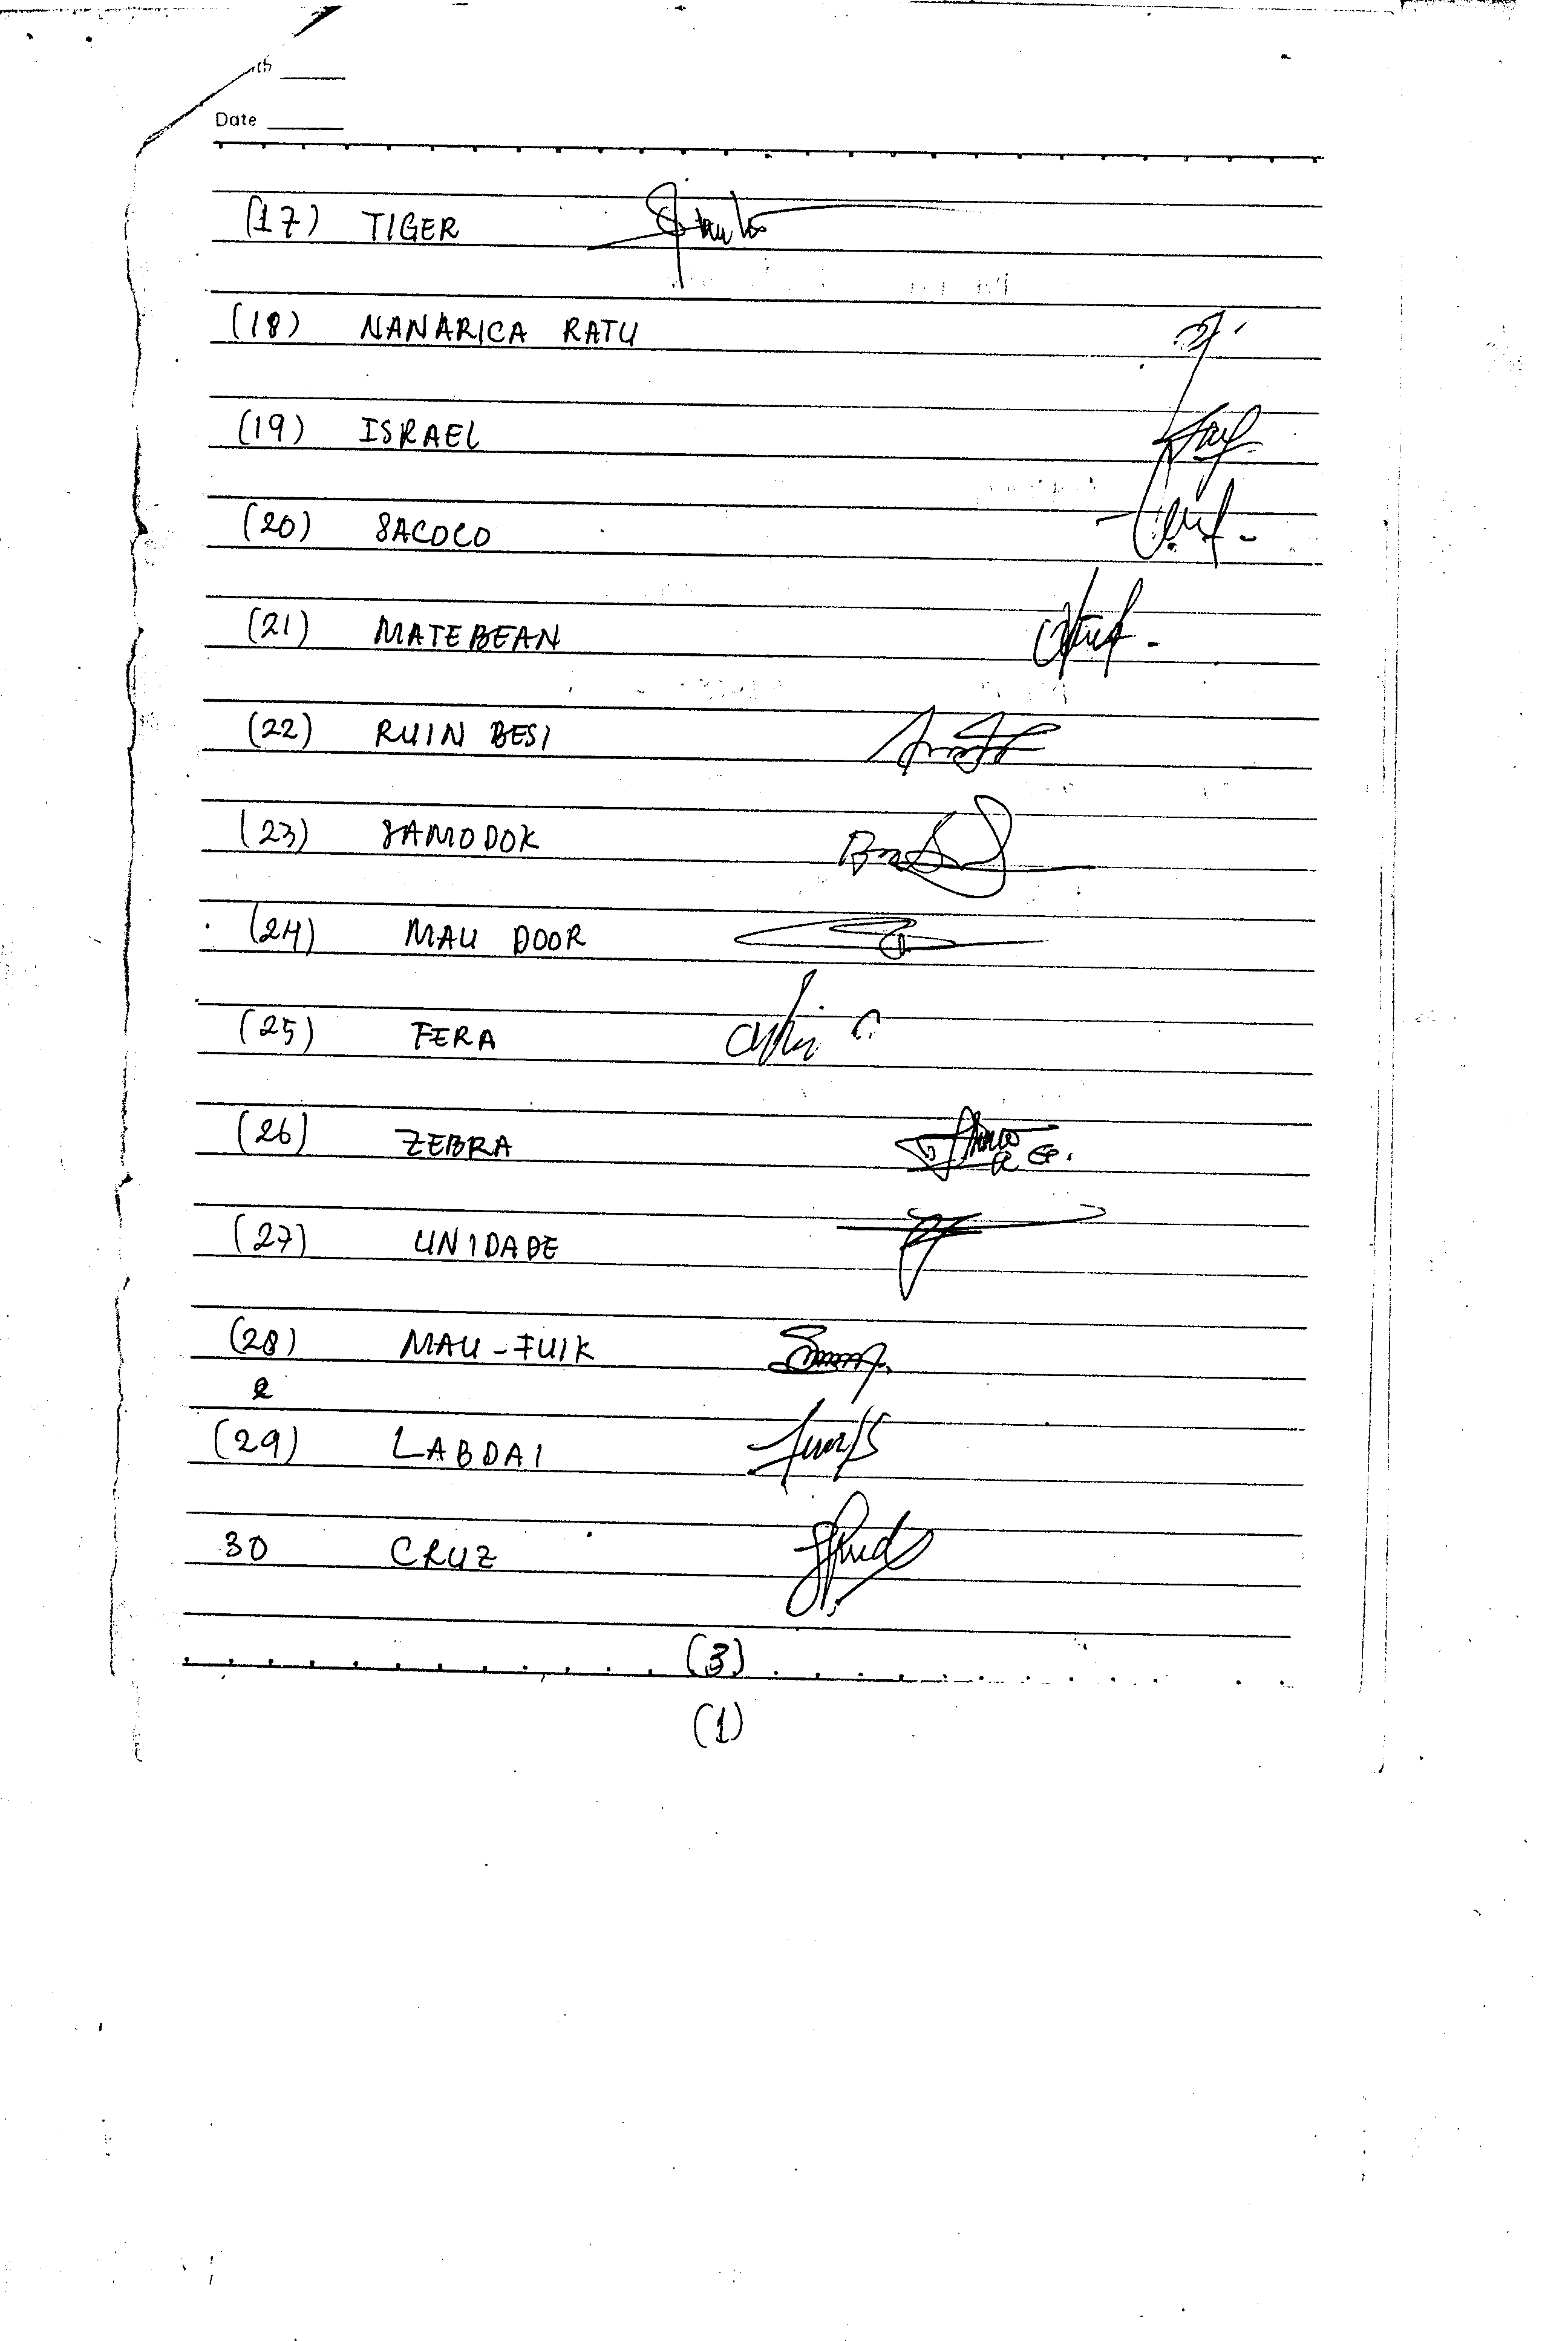 Date
(17) TIGER
(18) NANARICA RATU
(19) ISRAEL
(20) SACOCO
(21) MATEBEAN
(22) RUIN BESI
(23) SAMODOK
(24) MAU DOOR
(25) FERA
(26) ZEBRA
(27) UNIDADE
(28) MAU-FUIK
(29) LABDAI
30 CRUZ
(3)
(1)